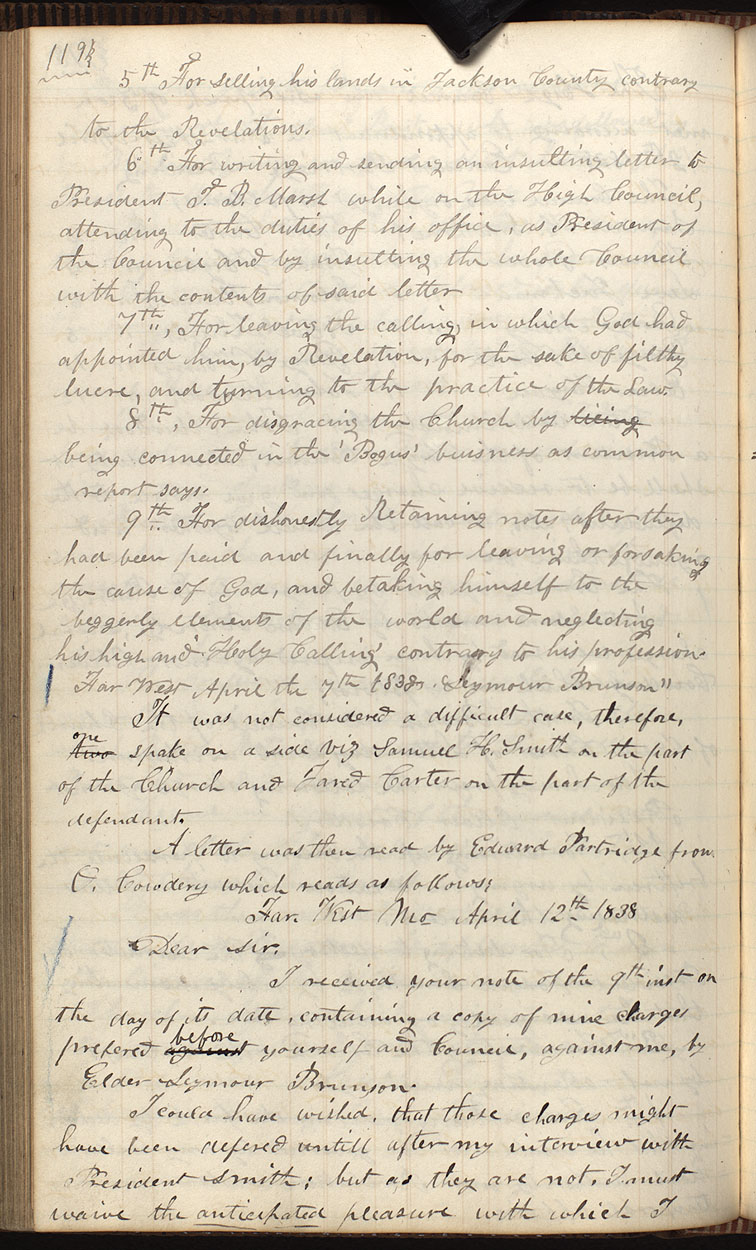 119½
5th For selling his lands in Jackson County contrary
to the Revelations.
6th For writing and sending an insulting letter to
President T. B. Marsh while on the High Council,
attending to the duties of his office, as President of
the Council and by insulting the whole Council
with the contents of said letter
7th, For leaving the calling, in which God had
appointed him, by Revelation, for the sake of filthy
lucre, and turning to the practice of the Law.
8th, For disgracing the Church by
being connected in the 'Bogus' buisness as common
report says.
9th For dishonestly Retaining notes after they
had been paid and finally for leaving or forsaking
the cause of God, and betaking himself to the
beggerly elements of the world and neglecting
his high and Holy Calling contrary to his profession.
Far West April the 7th 1838. Seymour Brunson"
It was not considered a difficult case, therefore,
two one spake on a side viz Samuel H. Smith on the part
of the Church and Jared Carter on the part of the
defendant.
A letter was then read by Edward Partridge from
O. Cowdery which reads as follows;
Far West Mo April 12th 1838
Dear Sir,
I received your note of the 9th inst on
the day of its date, containing a copy of nine charges
prefered against before yourself and Council, against me, by
Elder Seymour Brunson.
I could have wished, that those charges might
have been defered untill after my interview with
President Smith; but as they are not, I must
waive the anticipated pleasure with which I